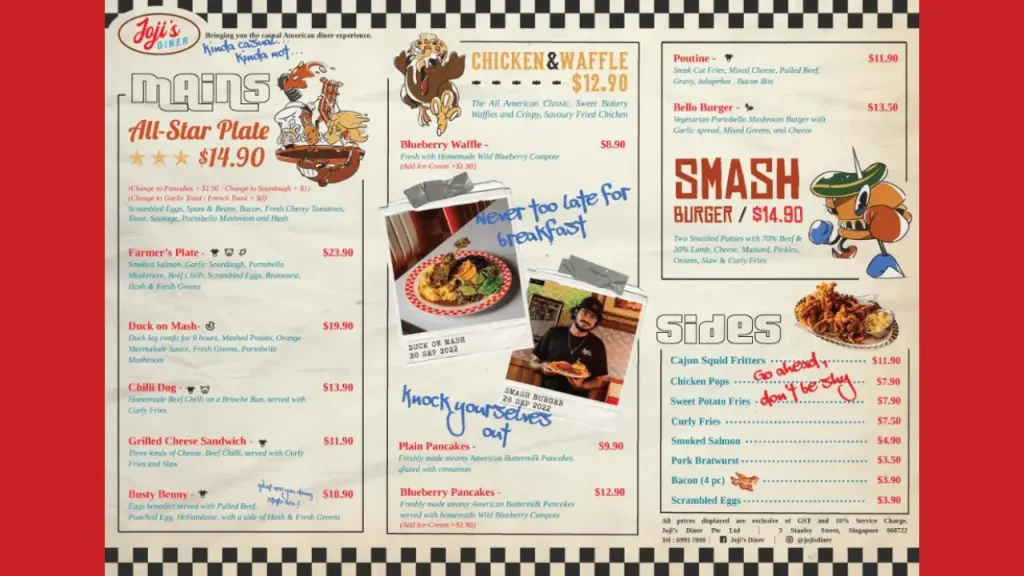 Joji's
DINER
Bringing you the casual American diner experience.
Kinda casual...
Kinda not...
MAINS
All-Star Plate
$14.90
(Change to Pancakes + $1.90 / Change to Sourdough + $1)
(Change to Garlic Toast / French Toast + $0)
Scrambled Eggs, Spam & Beans, Bacon, Fresh Cherry Tomatoes,
Toast, Sausage, Portobello Mushroom and Hash
Farmer's Plate - $23.90
Smoked Salmon, Garlic Sourdough, Portobello
Mushroom, Beef Chilli, Scrambled Eggs, Bratwurst,
Hash & Fresh Greens
Duck on Mash- $19.90
Duck leg confit for 9 hours, Mashed Potato, Orange
Marmalade Sauce, Fresh Greens, Portobello
Mushroom
Chilli Dog - $13.90
Homemade Beef Chilli on a Brioche Bun, served with
Curly Fries
Grilled Cheese Sandwich - $11.90
Three kinds of Cheese, Beef Chilli, served with Curly
Fries and Slaw
Busty Benny - $18.90
Eggs benedict served with Pulled Beef,
Poached Egg, Hollandaise, with a side of Hash & Fresh Greens
CHICKEN&WAFFLE
$12.90
The All American Classic, Sweet Buttery
Waffles and Crispy, Savoury Fried Chicken
Blueberry Waffle - $8.90
Fresh with Homemade Wild Blueberry Compote
(Add Ice-Cream +$1.90)
Never too late for
breakfast
DUCK ON MASH
26 SEP 2022
SMASH BURGER
26 SEP 2022
Knock yourselves
out
Plain Pancakes - $9.90
Freshly made steamy American Buttermilk Pancakes
glazed with cinnamon
Blueberry Pancakes - $12.90
Freshly made steamy American Buttermilk Pancakes
served with homemade Wild Blueberry Compote
(Add Ice-Cream +$1.90)
Poutine - $11.90
Steak Cut Fries, Mixed Cheese, Pulled Beef,
Gravy, Jalapeños , Bacon Bits
Bello Burger - $13.50
Vegetarian Portobello Mushroom Burger with
Garlic spread, Mixed Greens, and Cheese
SMASH
BURGER / $14.90
Two Smashed Patties with 70% Beef &
30% Lamb, Cheese, Mustard, Pickles,
Onions, Slaw & Curly Fries
Sides
Cajun Squid Fritters $11.90
Chicken Pops $7.90
Sweet Potato Fries $7.90
Go ahead,
don't be shy
Curly Fries $7.50
Smoked Salmon $4.90
Pork Bratwurst $3.50
Bacon (4 pc) $3.90
Scrambled Eggs $3.90
All prices displayed are exclusive of GST and 10% Service Charge.
Joji's Diner Pte Ltd | 3 Stanley Street, Singapore 068722
Tel : 6993 7090 | Joji's Diner | @jojisdiner